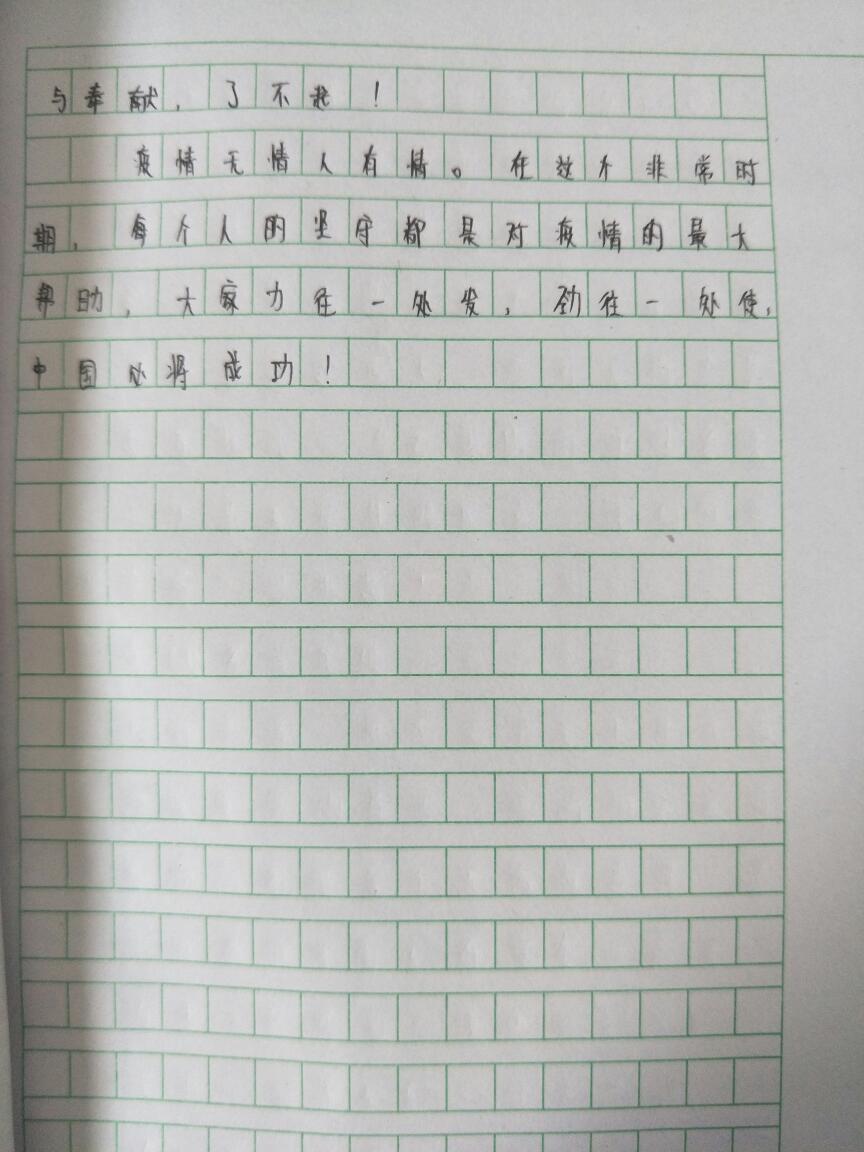 与奉献，了不起！
疫情无情人有情。在这个非常时
期，每个人的坚守都是对疫情的最大
帮助，大家力往一处发，劲往一处使，
中国必将成功！